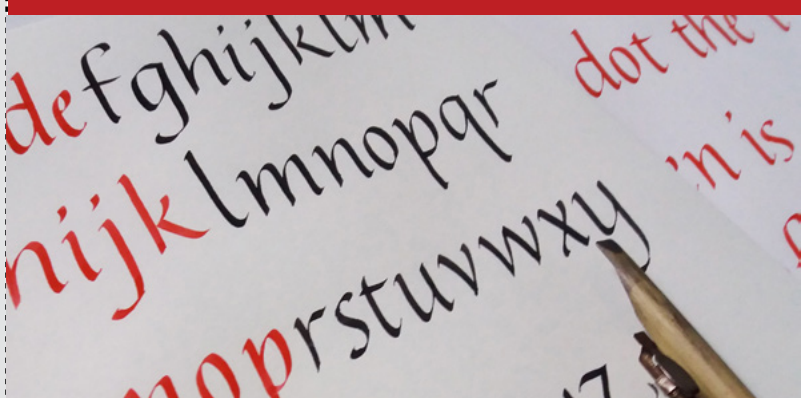 defghijklm
hijklmnopqr
noprstuvwxy
dot the
'n is